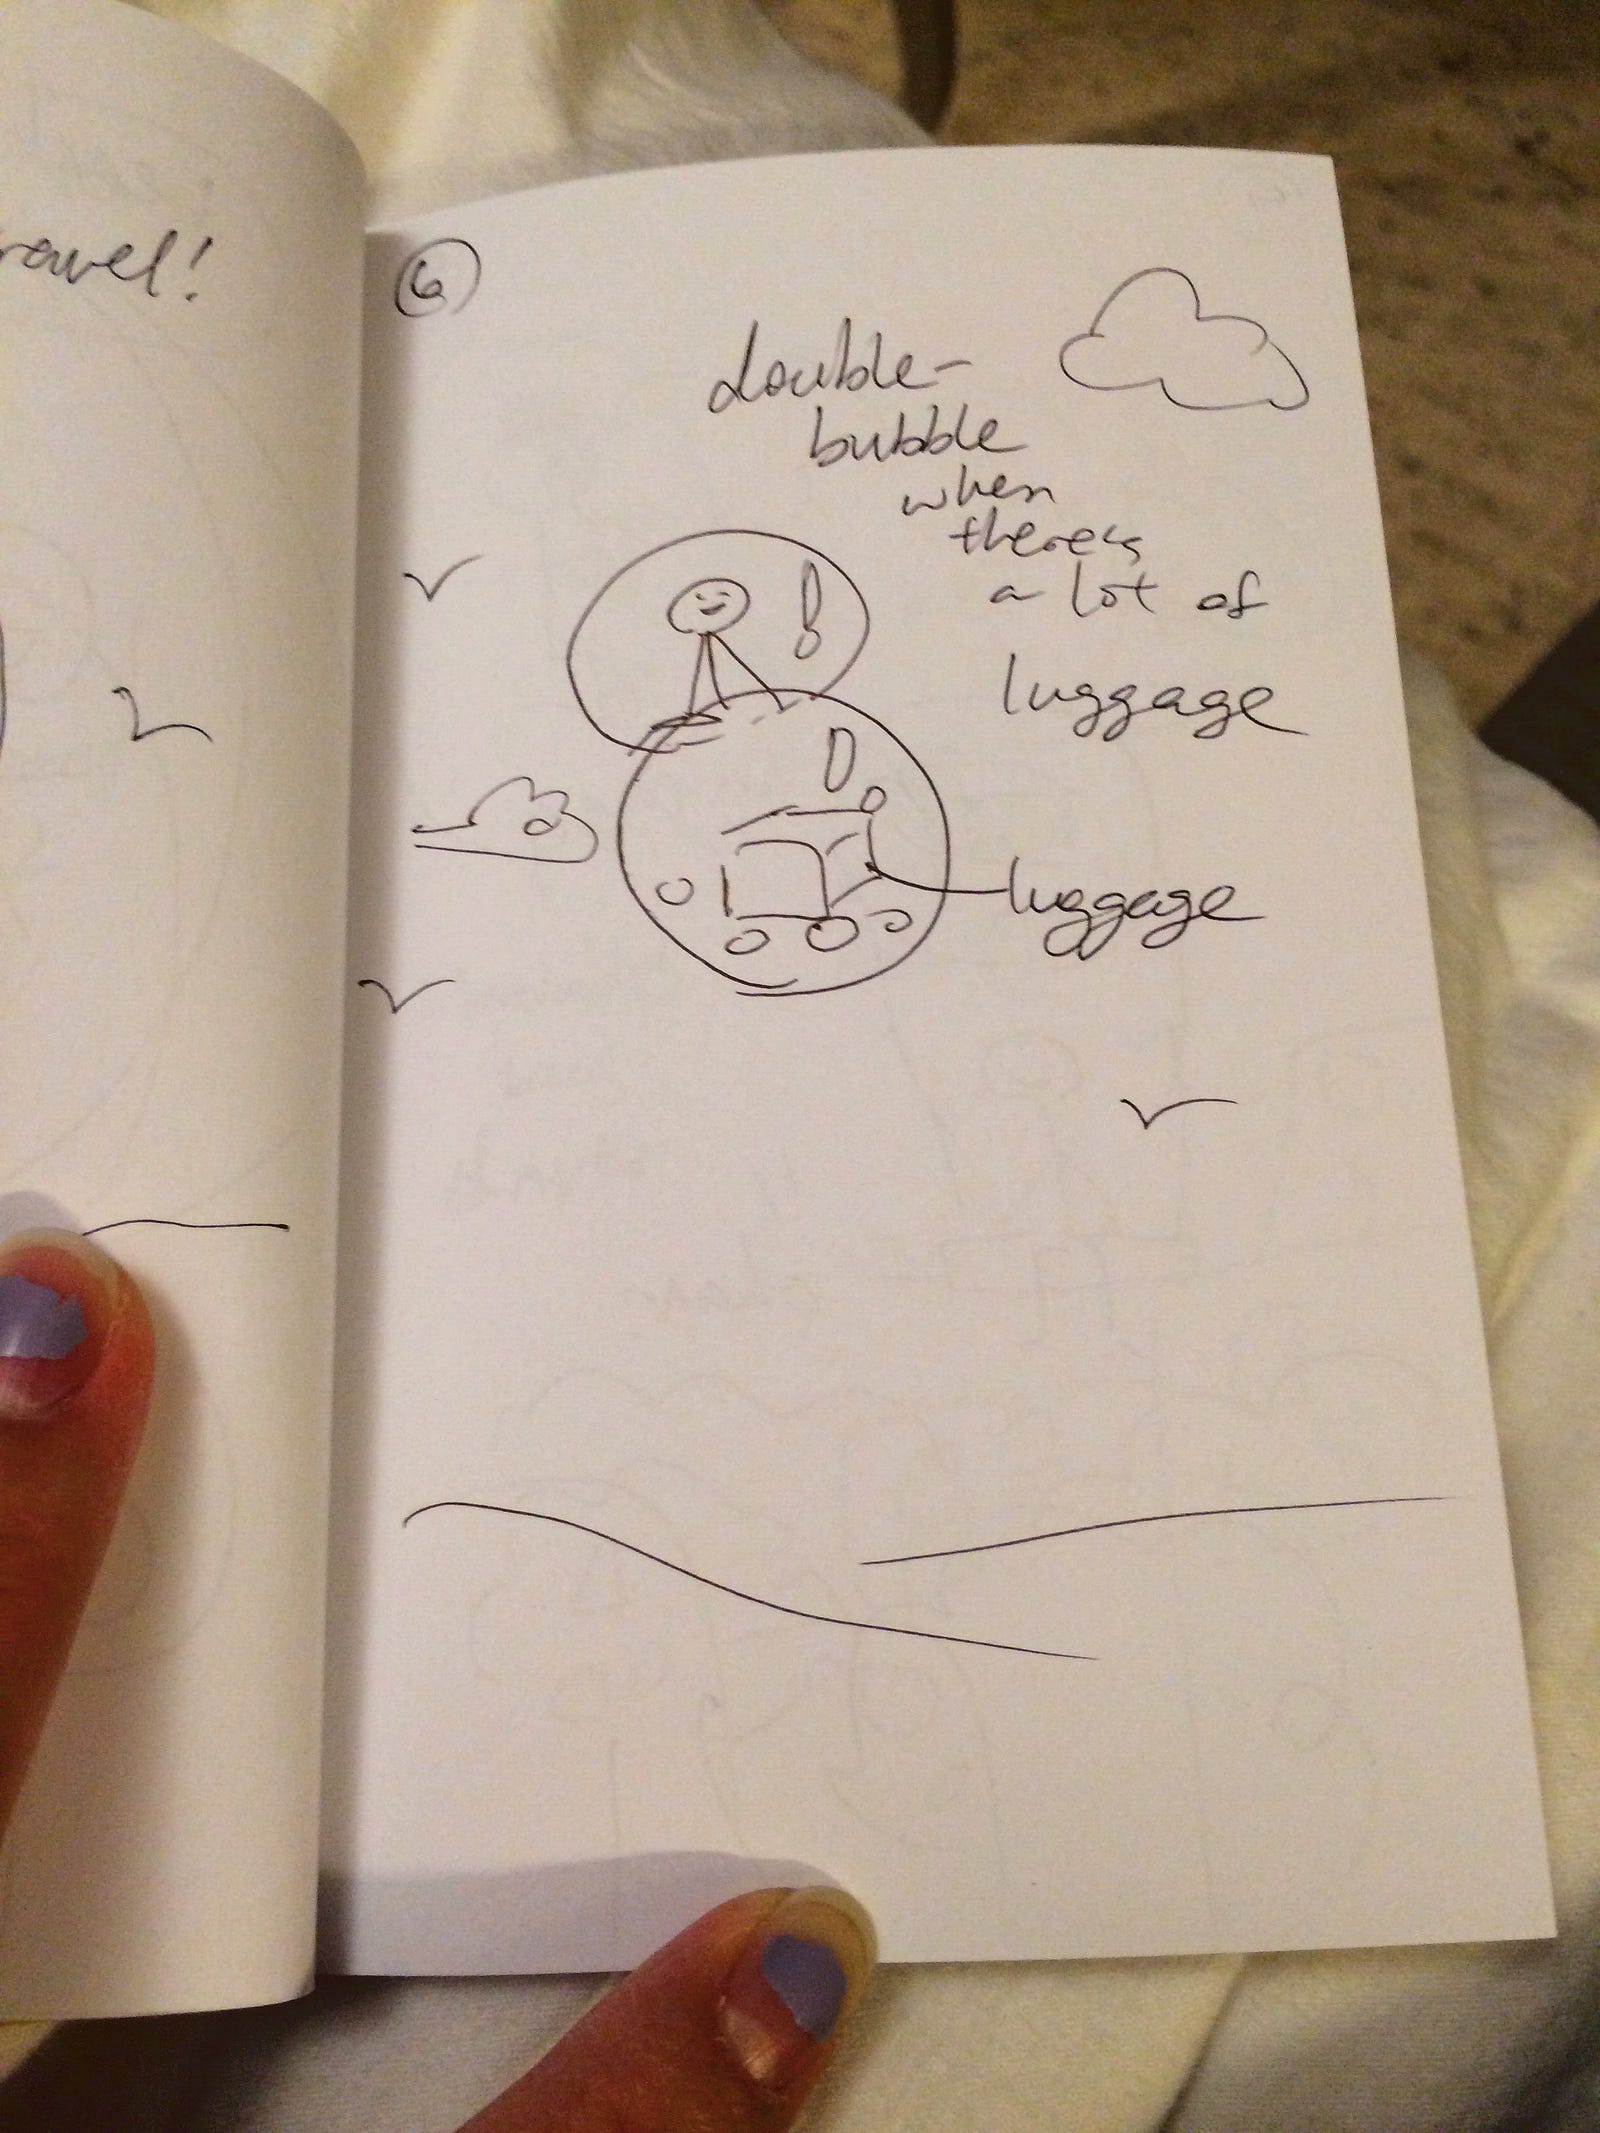 ravel!
6
double-
bubble
when
there's
a lot of
luggage
luggage